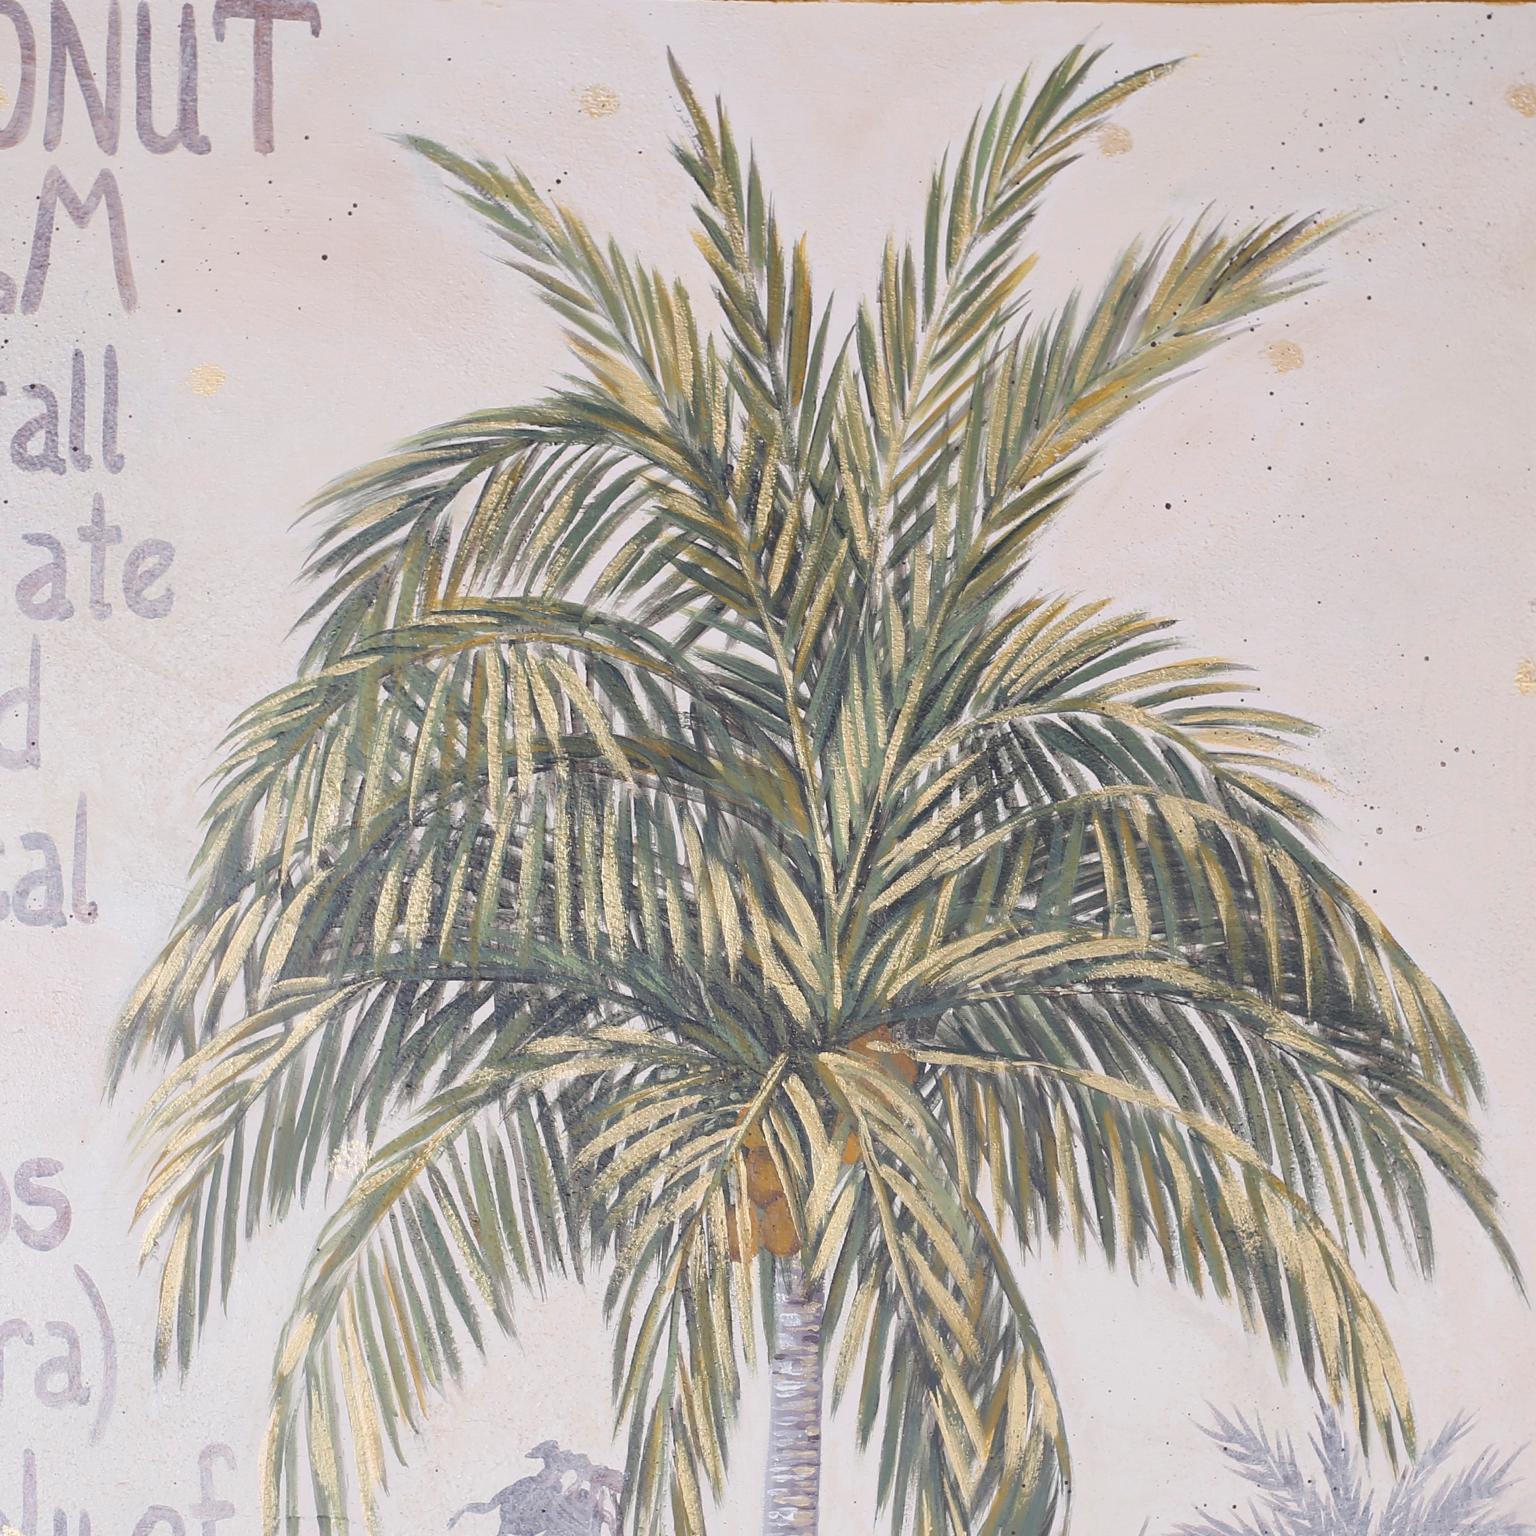 ONUT
LM
tall
ate
d
cal
os
ra)
ly of